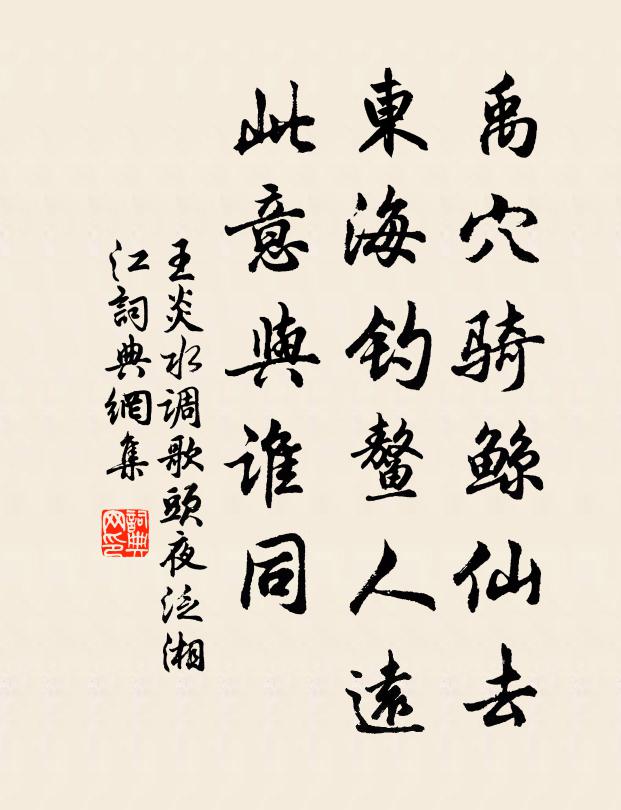 禹穴骑鲸仙去
東海钓鳌人遠
此意與谁同
王炎水调歌頭夜泛湘
江詞典網集
詞典
网印